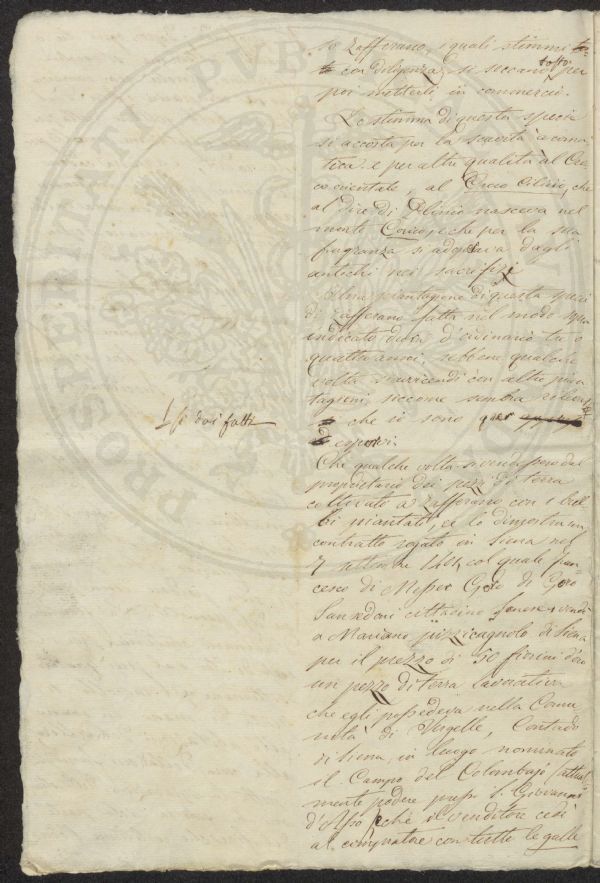 so zafferano, i quali stimmi
con diligenza si seccano tosto per
poi metterli in commercio.
Lo stimma di questa specie
si accosta per la soavità aroma
tica e per altre qualità al Cro
co orientale, al Croco Cilicio, che
al dire di Plinio nasceva nel
monte Corico, e che per la sua
fragranza si adoprava dagli
antichi nei sacrifizi
Una piantagione di questa specie
di zafferano fatta nel modo sopra
indicato dura d'ordinario tre o
quattro anni, sebbene qualche
volta si avvicendi con altre pian
tagioni, siccome sembra
che io sono per
esporvi.
si dai fatti
Che qualche volta si vendessero dal
proprietario dei pezzi di terra
coltivato a zafferano con i bul
bi piantati, ce lo dimostra un
contratto rogato in Siena nel
7 settembre col quale
di Messer Goro di Goro
Sansedoni cittadino Senese vendé
a Mariano pizzicagnolo di Siena
per il prezzo di 50 fiorini d'oro
un pezzo di terra lavorativa
che egli possedeva nella Comu
nità di Vergelle, Contado
di Siena, in luogo nominato
il Campo del Colombajo (attual
mente podere presso S. Giovanni
d'Asso) che il venditore cedé
al compratore con tutte le quali